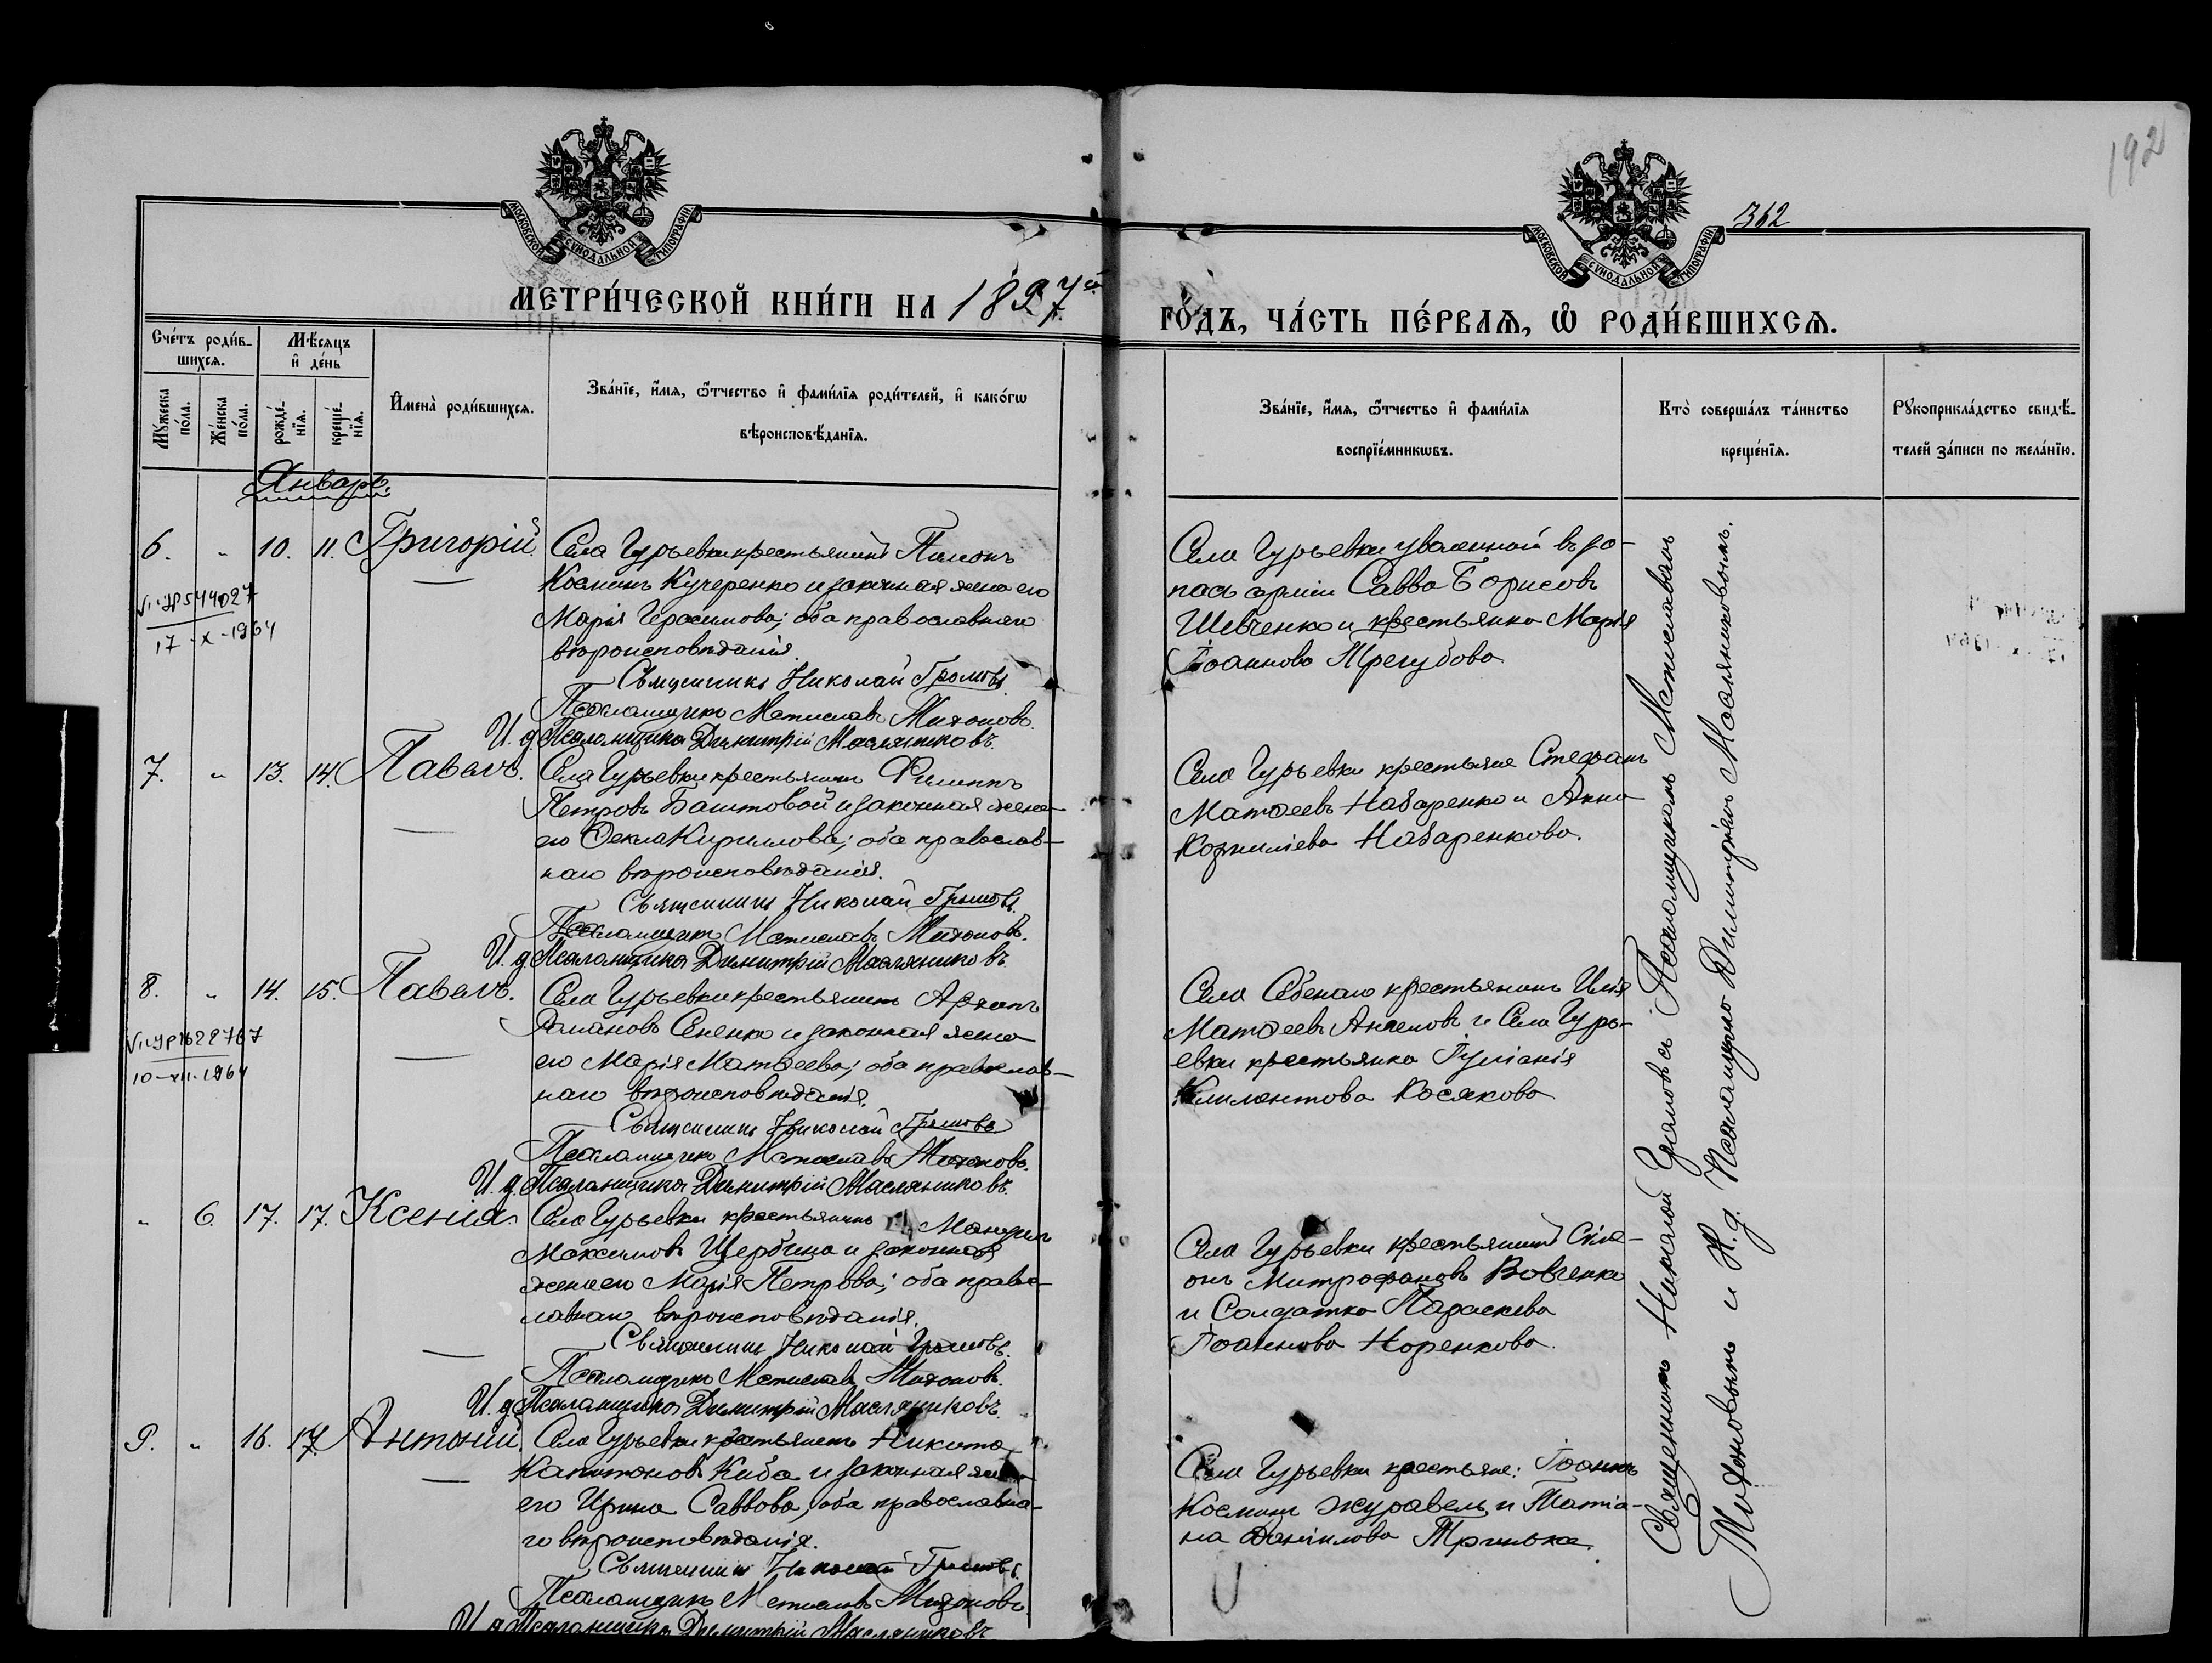 192
362
МОСКОВСКОЙ СѴНОДАЛЬНОЙ ТИПОГРАФІИ
МОСКОВСКОЙ СѴНОДАЛЬНОЙ ТИПОГРАФІИ
МЕТРИ́ЧЕСКОЙ КНИ́ГИ НА 1897й
ГО́ДЪ, ЧА́СТЬ ПЕ́РВАѦ, Ѡ҆ РОДИ́ВШИХСѦ.
Сче́тъ роди́в-
шихсѧ.
Мѣ́сяцъ
и҆ де́нь
Мꙋ́жеска по́ла.
Же́нска по́ла.
рожде́-
нїѧ.
креще́-
нїѧ.
И҆мена̀ роди́вшихсѧ.
Зва́нїе, и҆́мѧ, ѻ҆́тчество и҆ фами́лїѧ роди́телей, и҆ како́гѡ
вѣроисповѣ́данїѧ.
Зва́нїе, и҆́мѧ, ѻ҆́тчество и҆ фами́лїѧ
воспрїе́мникѡвъ.
Кто̀ соверша́лъ та́инство
креще́нїѧ.
Рꙋкоприкла́дство свидѣ́-
телей за́писи по жела́нїю.
Январь.
6. " 10. 11. Григорій.
Села Гурьевки крестьянинъ
Косминъ Кучеренко и законная жена его
Марія Герасимова; оба православнаго
вѣроисповѣданія.
Священникъ Николай Громовъ.
Псаломщикъ Мстиславъ Тихоновъ.
И. д. Псаломщика Димитрій Масляниковъ.
17-X-1964
Села Гурьевки уволенный въ за-
пасъ арміи Савва Борисовъ
Шевченко и крестьянка Марія
Іоаннова Трегубова.
7. " 13. 14. Павелъ.
Села Гурьевки крестьянинъ Филиппъ
Петровъ Баштовой и законная жена
его Ѳекла Кириллова; оба православ-
наго вѣроисповѣданія.
Священникъ Николай Громовъ.
Псаломщикъ Мстиславъ Тихоновъ.
И. д. Псаломщика Димитрій Масляниковъ.
Села Гурьевки крестьяне Стефанъ
Матѳеевъ Назаренко и Анна
Корниліева Назаренкова.
8. " 14. 15. Павелъ.
Села Гурьевки крестьянинъ
Романовъ Сененко и законная жена
его Марія Матѳеева; оба православ-
наго вѣроисповѣданія.
Священникъ Николай Громовъ
Псаломщикъ Мстиславъ Тихоновъ.
И. д. Псаломщика Димитрій Масляниковъ.
10-XII-1964
крестьянинъ Илія
Матѳеевъ и Села Гурь-
евки крестьянка Іуліанія
Климентова Косякова
" 6 17. 17. Ксенія.
Села Гурьевки крестьянинъ
Максимовъ Щербина и законная
жена его Марія Петрова; оба право-
славнаго вѣроисповѣданія.
Священникъ Николай Громовъ.
Псаломщикъ Мстиславъ Тихоновъ.
И. д. Псаломщика Димитрій Масляниковъ.
Села Гурьевки крестьянинъ Симе-
онъ Митрофановъ Вовченко
и Солдатка Параскева
Іоаннова Норенкова.
9. " 16. 17. Антоній.
Села Гурьевки крестьянинъ Никита
Капитоновъ Киба и законная жена
его Ирина Саввова, оба православна-
го вѣроисповѣданія.
Священникъ Николай Громовъ.
Псаломщикъ Мстиславъ Тихоновъ.
И. д. Псаломщика Димитрій Масляниковъ
Села Гурьевки крестьяне: Іоаннъ
Косминъ Журавель и Татіа-
на Даніилова
Священникъ Николай Громовъ съ Псаломщикомъ Мстиславомъ
Тихоновымъ и И. д. Псаломщика Димитріемъ Масляниковымъ.